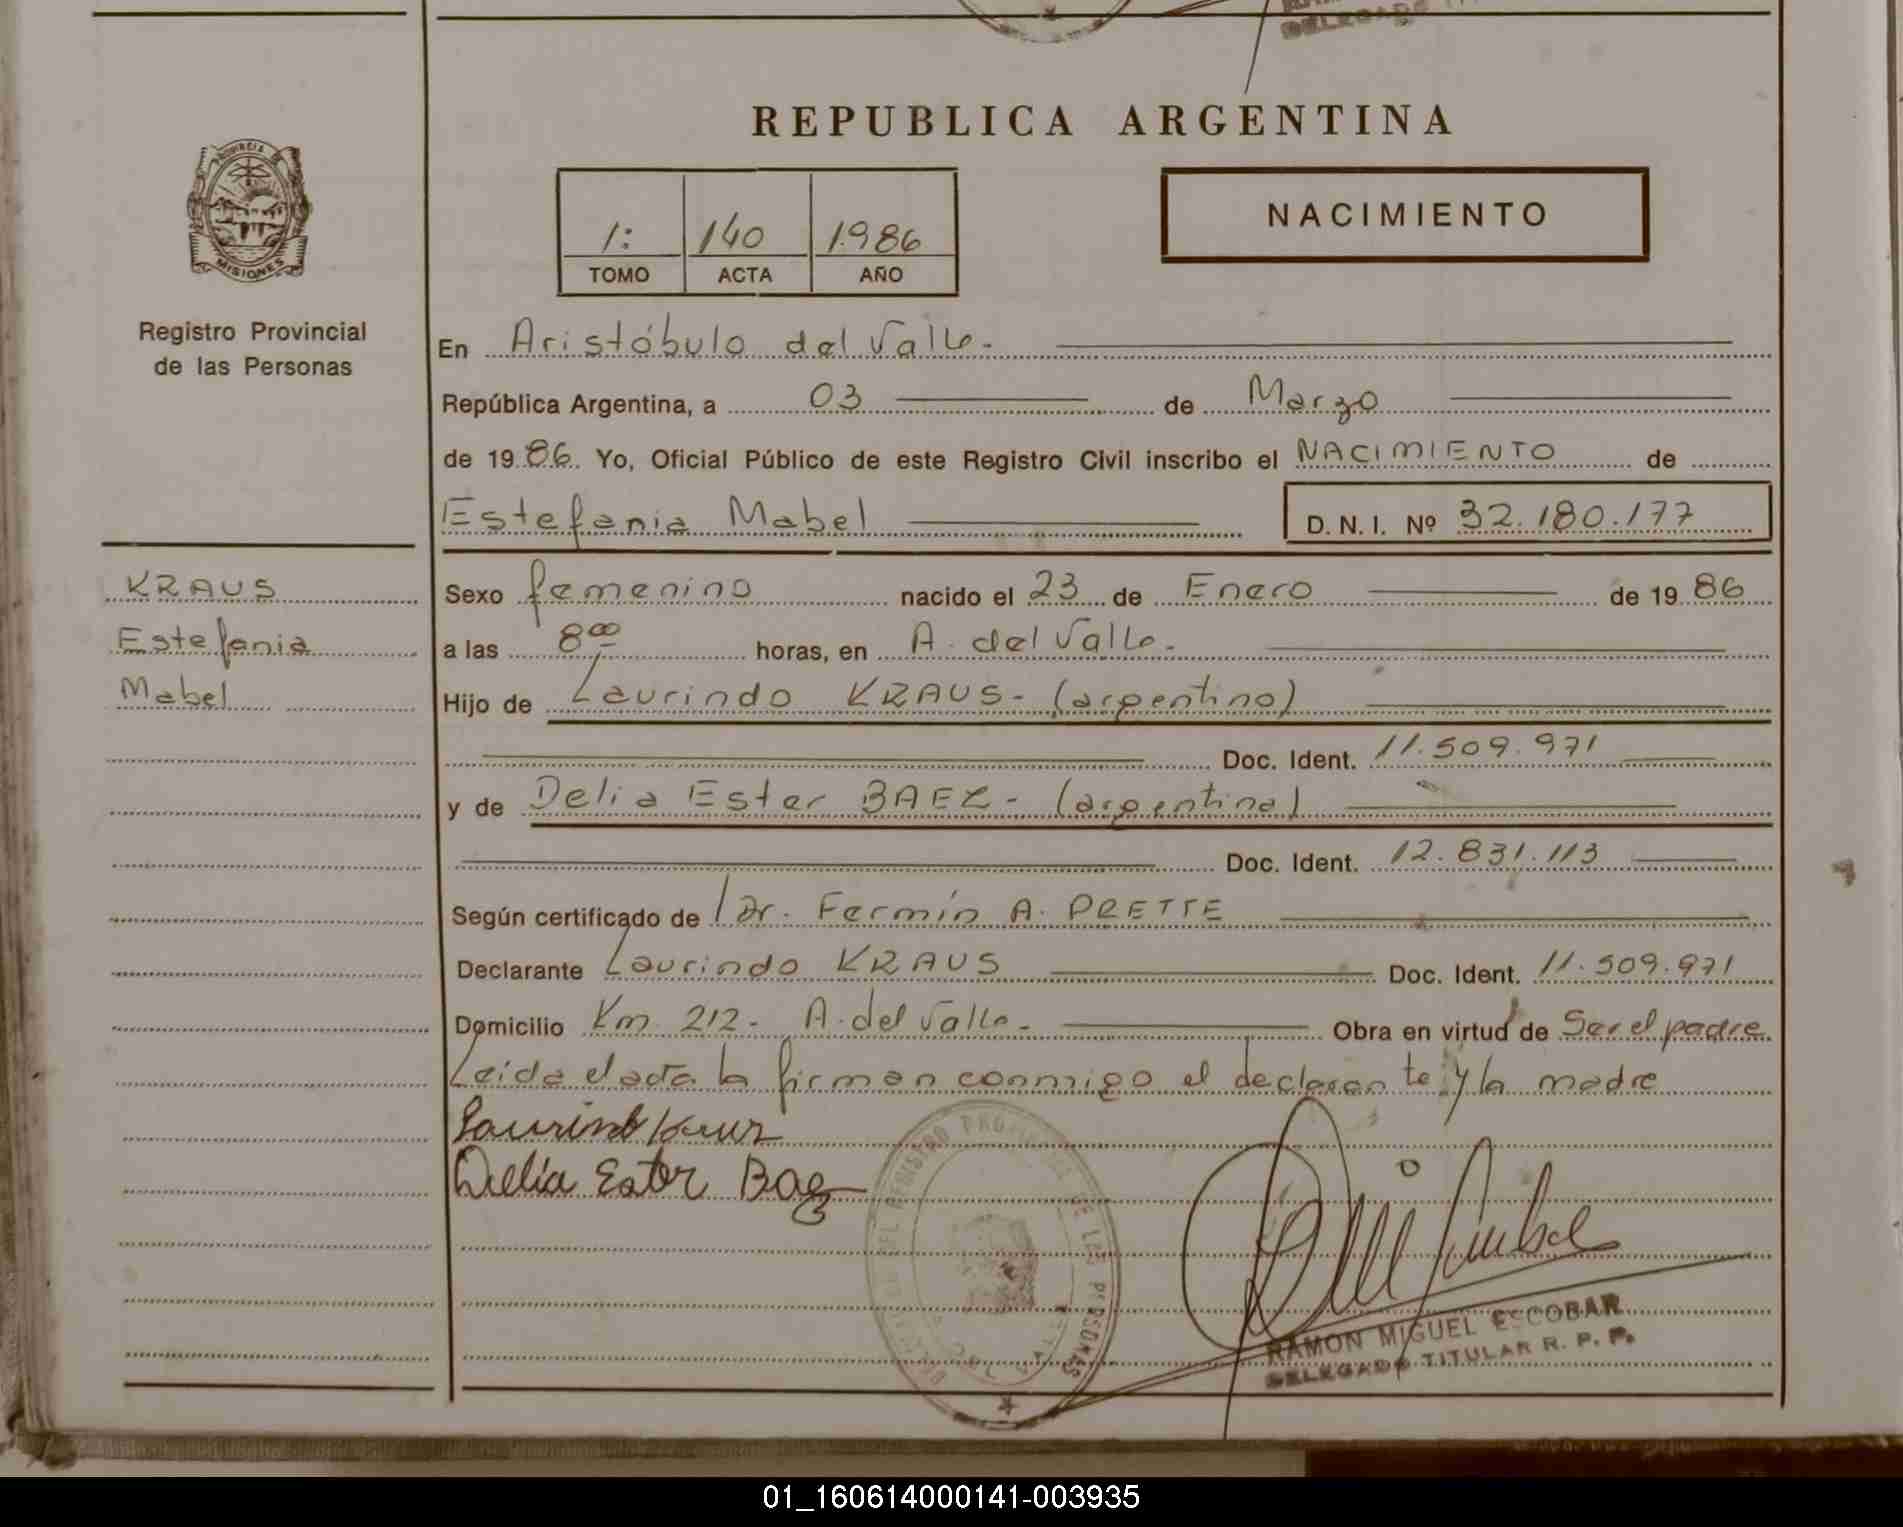 DELEGADO
REPUBLICA ARGENTINA
PROVINCIA DE
MISIONES
Registro Provincial
de las Personas
1: 140 1986
TOMO ACTA AÑO
NACIMIENTO
En Aristóbulo del Valle.-
República Argentina, a 03 de Marzo
de 1986. Yo, Oficial Público de este Registro Civil inscribo el NACIMIENTO de
Estefania Mabel D. N. I. Nº 32.180.177
KRAUS
Estefania
Mabel
Sexo femenino nacido el 23 de Enero de 1986
a las 8 00 horas, en A. del Valle.-
Hijo de Laurindo KRAUS- (argentino)
Doc. Ident. 11.509.971
y de Delia Ester BAEZ- (argentina)
Doc. Ident. 12.831.113
Según certificado de Dr. Fermín A. PRETTE
Declarante Laurindo KRAUS Doc. Ident. 11.509.971
Domicilio Km 212- A. del Valle- Obra en virtud de Ser el padre
Leida el acta la firman conmigo el declarante y la madre
Delia Ester Baez
DEL REGISTRO PROVINCIAL DE LAS PERSONAS
RAMON MIGUEL ESCOBAR
DELEGADO TITULAR R. P. P.
01_160614000141-003935